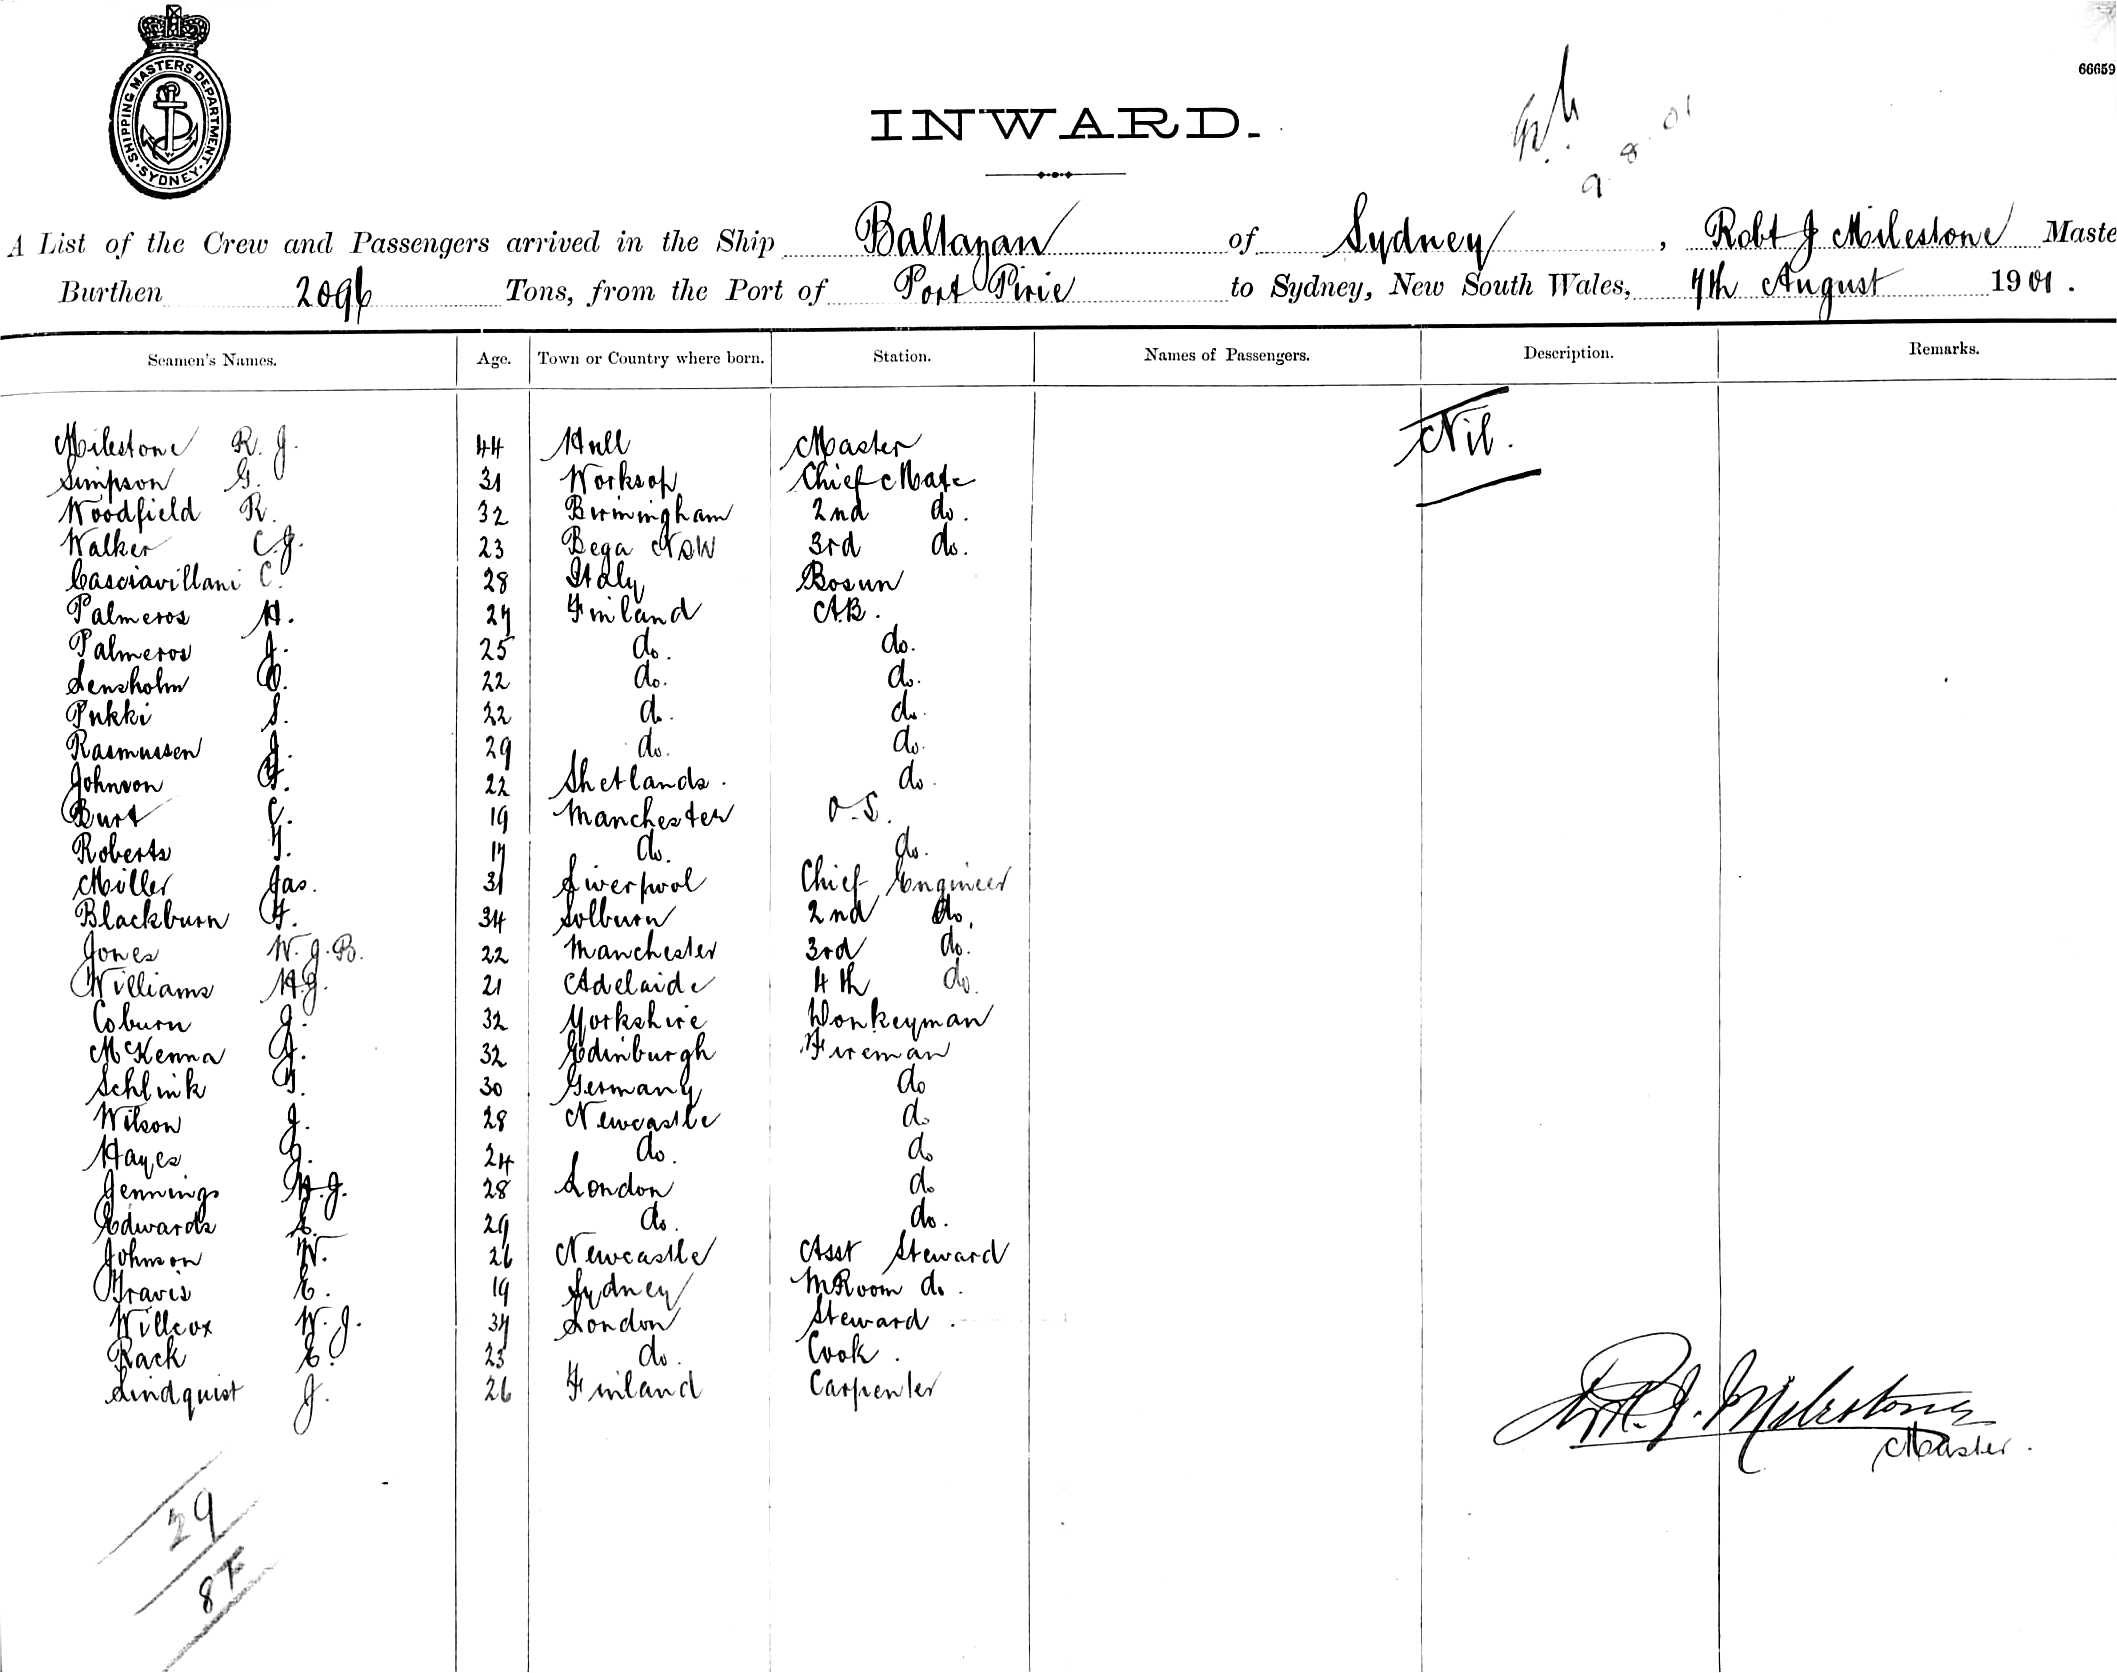 SHIPPING MASTERS DEPARTMENT · SYDNEY ·
66659
INWARD.
9. 8. 01
A List of the Crew and Passengers arrived in the Ship Baltazan of Sydney, Robt J Milestone Maste
Burthen 2096 Tons, from the Port of Port Pirie to Sydney, New South Wales, 7th August 1901.
Seamen's Names. Age. Town or Country where born. Station. Names of Passengers. Description. Remarks.
Nil.
Milestone R. J. 44 Hull Master
Simpson G. 31 Worksop Chief Mate
Woodfield R. 32 Birmingham 2nd do.
Walker C.J. 23 Bega NSW 3rd do.
Casciavillani C. 28 Italy Bosun
Palmeros H. 27 Finland A.B.
Palmeros J. 25 do. do.
Lensholm O. 22 do. do.
Pukki S. 22 do. do.
Rasmussen J. 29 do. do.
Johnson 22 Shetlands. do.
Burt C. 19 Manchester O.S.
Roberts 17 do. do.
Miller Jas. 31 Liverpool Chief Engineer
Blackburn 34 Solburn 2nd do.
Jones W.J.B. 22 Manchester 3rd do.
Williams H.J. 21 Adelaide 4th do.
Coburn J. 32 Yorkshire Donkeyman
McKenna 32 Edinburgh Fireman
Schlink 30 Germany do
Wilson J. 28 Newcastle do
Hayes 24 do. do
Jennings H.J. 28 London do
Edwards E. 29 do. do.
Johnson W. 26 Newcastle Asst Steward
Travis E. 19 Sydney M Room do.
Willcox W.J. 37 London Steward.
Rack E. 23 do. Cook.
Lindquist J. 26 Finland Carpenter
R. J. Milestone
Master.
29
8 F